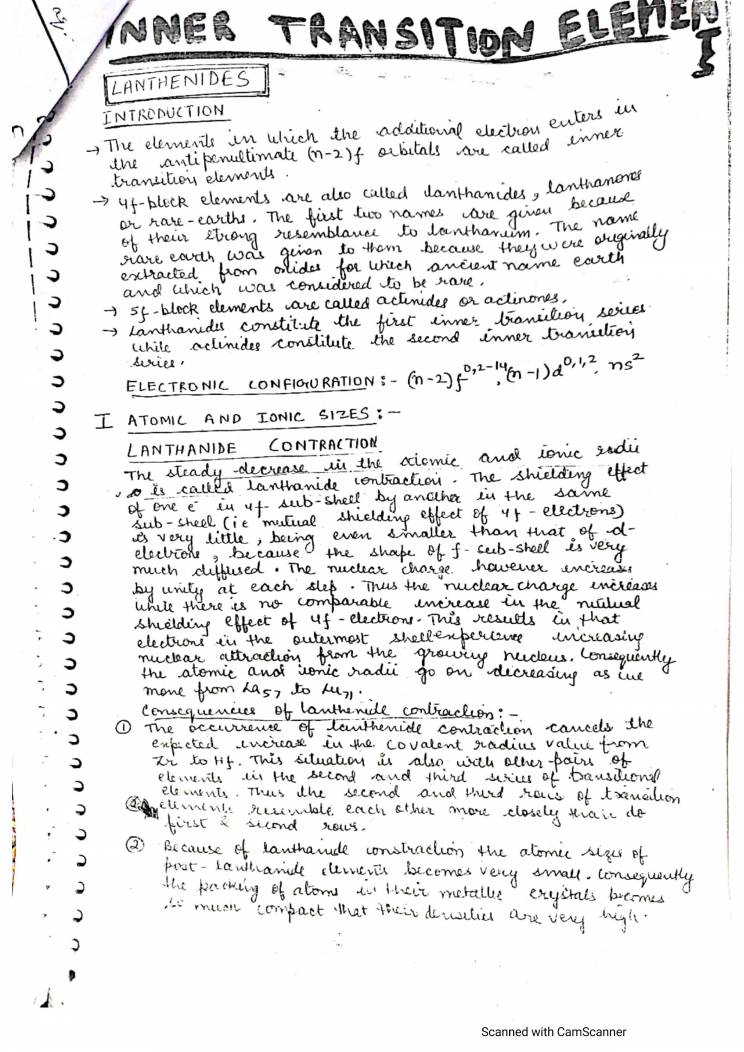 INNER TRANSITION ELEMENTS
LANTHENIDES
INTRODUCTION
→ The elements in which the additional electron enters in
the antipenultimate (n-2)f orbitals are called inner
transition elements.
→ 4f-block elements are also called lanthanides, lanthanones
or rare-earths. The first two names are given because
of their strong resemblance to lanthanum. The name
rare earth was given to them because they were originally
extracted from oxides for which ancient name earth
and which was considered to be rare.
→ 5f-block elements are called actinides or actinones.
→ Lanthanides constitute the first inner transition series
while actinides constitute the second inner transition
series.
ELECTRONIC CONFIGURATION :- (n-2)f^0,2-14, (n-1)d^0,1,2, ns^2
I ATOMIC AND IONIC SIZES :-
LANTHANIDE CONTRACTION
The steady decrease in the atomic and ionic radii
is called lanthanide contraction. The shielding effect
of one e⁻ in 4f sub-shell by another in the same
sub-shell (ie mutual shielding effect of 4f-electrons)
is very little, being even smaller than that of d-
electrons, because the shape of f-sub-shell is very
much diffused. The nuclear charge however increases
by unity at each step. Thus the nuclear charge increases
while there is no comparable increase in the mutual
shielding effect of 4f-electrons. This results in that
electrons in the outermost shell experience increasing
nuclear attraction from the growing nucleus. Consequently
the atomic and ionic radii go on decreasing as we
move from La57 to Lu71.
Consequencies of lanthenide contraction:-
① The occurrence of lanthenide contraction cancels the
expected increase in the covalent radius value from
Zr to Hf. This situation is also with other pairs of
elements in the second and third series of transitional
elements. Thus the second and third rows of transition
elements resemble each other more closely than do
first & second rows.
② Because of lanthanide constraction the atomic sizes of
post-lanthanide elements becomes very small. Consequently
the packing of atoms in their metallic crystals becomes
so much compact that their densities are very high.
Scanned with CamScanner